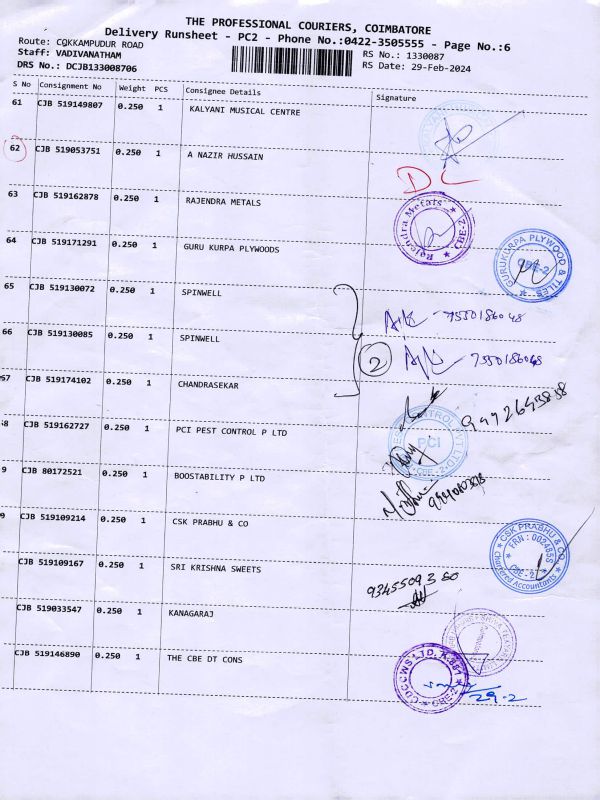 THE PROFESSIONAL COURIERS, COIMBATORE
Delivery Runsheet - PC2 - Phone No.:0422-3505555 - Page No.:6
Route: COKKAMPUDUR ROAD
RS No.: 1330087
Staff: VADIVANATHAM
RS Date: 29-Feb-2024
DRS No.: DCJB133008706
S No Consignment No Weight PCS Consignee Details Signature
61 CJB 519149807 0.250 1 KALYANI MUSICAL CENTRE
62 CJB 519053751 0.250 1 A NAZIR HUSSAIN
DL
63 CJB 519162878 0.250 1 RAJENDRA METALS
Rajendra Metals CBE-2
64 CJB 519171291 0.250 1 GURU KURPA PLYWOODS
GURUKURPA PLYWOOD & TILES CBE-2
65 CJB 519130072 0.250 1 SPINWELL
7550186048
66 CJB 519130085 0.250 1 SPINWELL
2 7550186048
67 CJB 519174102 0.250 1 CHANDRASEKAR
68 CJB 519162727 0.250 1 PCI PEST CONTROL P LTD
PCI CBE-2
9 CJB 80172521 0.250 1 BOOSTABILITY P LTD
9 CJB 519109214 0.250 1 CSK PRABHU & CO
CSK PRABHU & CO FRN : 002485S CBE-2 Chartered Accountants
CJB 519109167 0.250 1 SRI KRISHNA SWEETS
CJB 519033547 0.250 1 KANAGARAJ
CJB 519146890 0.250 1 THE CBE DT CONS
29-2